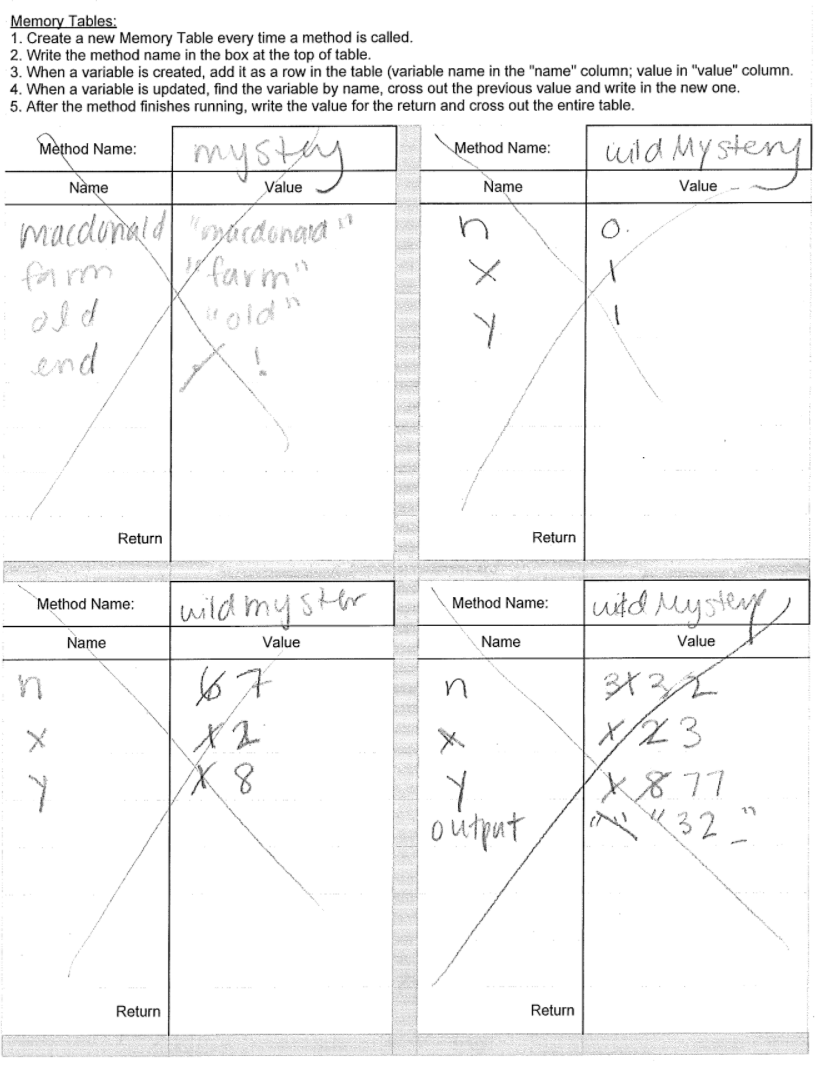 Memory Tables:
1. Create a new Memory Table every time a method is called.
2. Write the method name in the box at the top of table.
3. When a variable is created, add it as a row in the table (variable name in the "name" column; value in "value" column.
4. When a variable is updated, find the variable by name, cross out the previous value and write in the new one.
5. After the method finishes running, write the value for the return and cross out the entire table.
Method Name: mystery
Name Value
macdonald "macdonald"
farm "farm"
old "old"
end !
Return
Method Name: wild Mystery
Name Value
n 0
x 1
y 1
Return
Method Name: wild myster
Name Value
n 6 7
x 1 2
y 8
Return
Method Name: wild Mystery
Name Value
n 2
x 1 2 3
y 8 77
output "" "32_"
Return